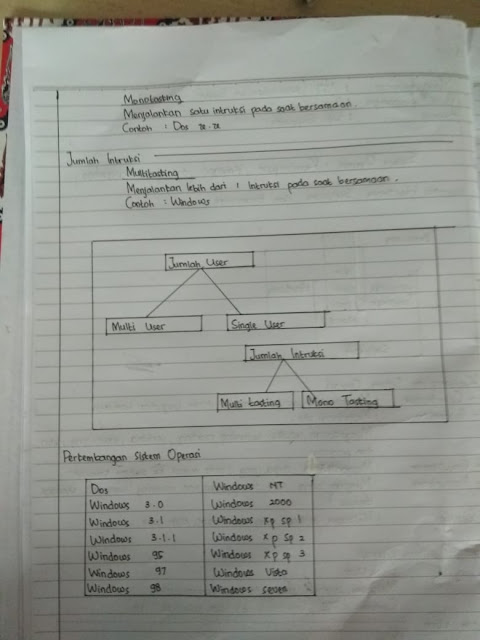 Monotasting
Menjalankan satu intruksi pada saat bersamaan.
Contoh : Dos
Jumlah Intruksi
Multitasting
Menjalankan lebih dari 1 Intruksi pada saat bersamaan.
Contoh : Windows
Jumlah User
Multi User Single User
Jumlah Intruksi
Multi tasting Mono Tasting
Perkembangan Sistem Operasi
Dos Windows NT
Windows 3.0 Windows 2000
Windows 3.1 Windows xp sp 1
Windows 3.1.1 Windows xp sp 2
Windows 95 Windows xp sp 3
Windows 97 Windows Vista
Windows 98 Windows seven